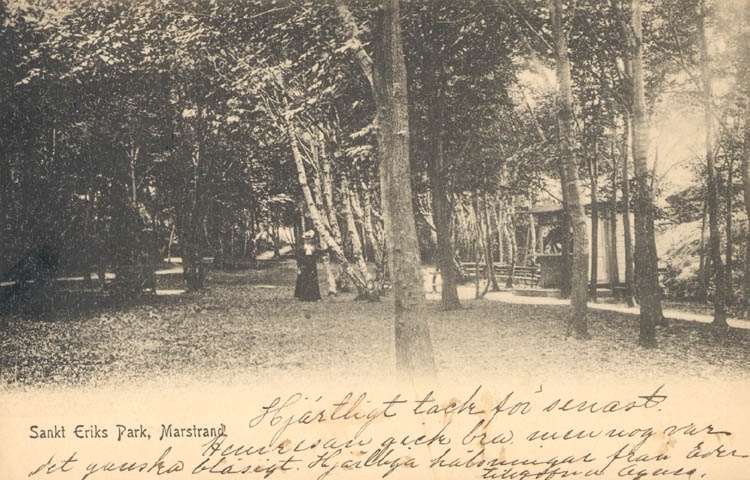 Sankt Eriks Park, Marstrand.
Hjärtligt tack för senast.
Hemresan gick bra men nog var
det ganska blåsigt. Hjärtliga hälsningar från Eder
tillgifna Agnes.